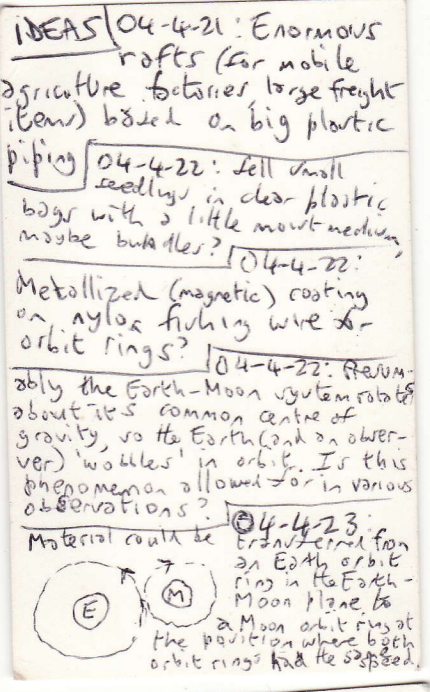 IDEAS 04-4-21: Enormous
rafts (for mobile
agriculture factories, large freight
items) based on big plastic
piping 04-4-22: Sell small
seedlings in clear plastic
bags with a little moist medium,
maybe bundles? 04-4-22:
Metallized (magnetic) coating
on nylon fishing wire for
orbit rings? 04-4-22: Presum-
ably the Earth-Moon system rotates
about its common centre of
gravity, so the Earth (and an obser-
ver) 'wobbles' in orbit. Is this
phenomenon allowed for in various
observations? 04-4-23:
Material could be transferred from
an Earth orbit
ring in the Earth-
Moon plane to
a Moon orbit ring at
the position where both
orbit rings had the same speed.
E M